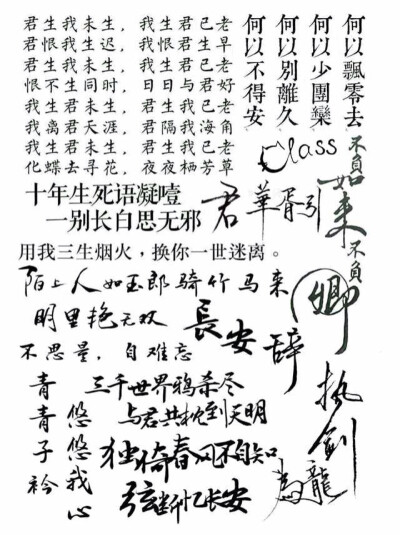 君生我未生，我生君已老
君恨我生迟，我恨君生早
君生我未生，我生君已老
恨不生同时，日日与君好
我生君未生，君生我已老
我离君天涯，君隔我海角
我生君未生，君生我已老
化蝶去寻花，夜夜栖芳草
何以飄零去
何以少團欒
何以別離久
何以不得安
Class
不负
如来
不负
卿
十年生死语凝噎
一别长白思无邪
君
華胥引
用我三生烟火，换你一世迷离。
陌上人如玉郎骑竹马来
明里艳无双
長安辞
不思量，自难忘
执剑
為龍
青青子衿
悠悠我心
三千世界鸦杀尽
与君共枕到天明
独倚春风不自知
弦断忆长安